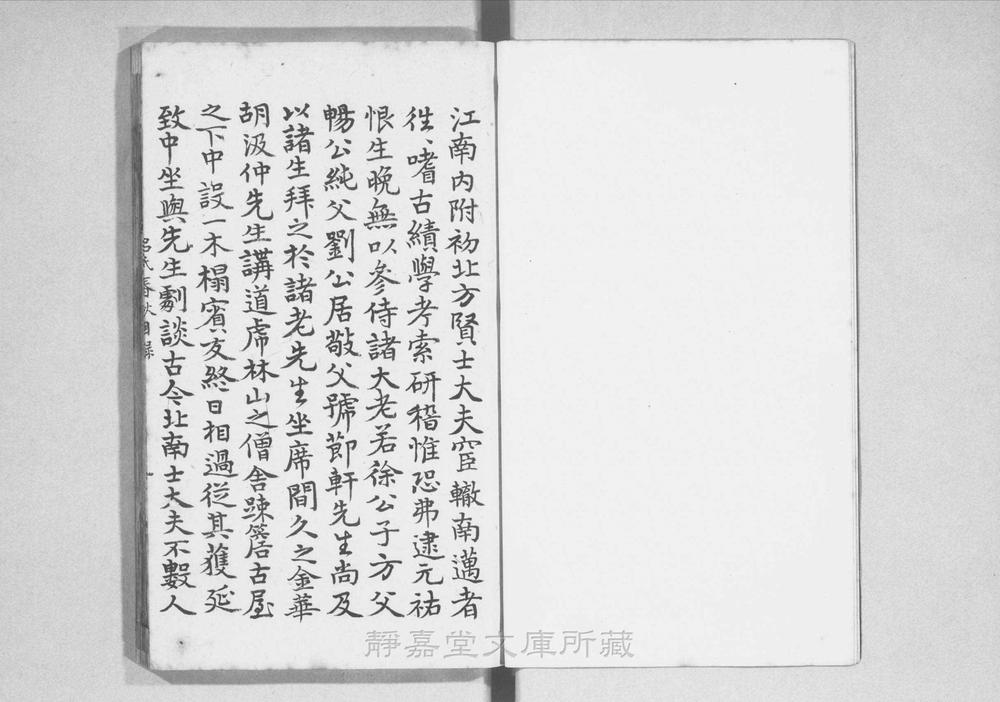 江南内附初北方賢士大夫宦轍南邁者
徃〻嗜古績學考索研稽惟恐弗逮元祐
恨生晚無以參侍諸大老若徐公子方父
暢公純父劉公居敬父號節軒先生尚及
以諸生拜之於諸老先生坐席間久之金華
胡汲仲先生講道虎林山之僧舍踈簷古屋
之下中設一木榻賓友終日相過從其獲延
致中坐與先生劇談古今北南士大夫不數人
呂氏春秋目錄
一
靜嘉堂文庫所藏